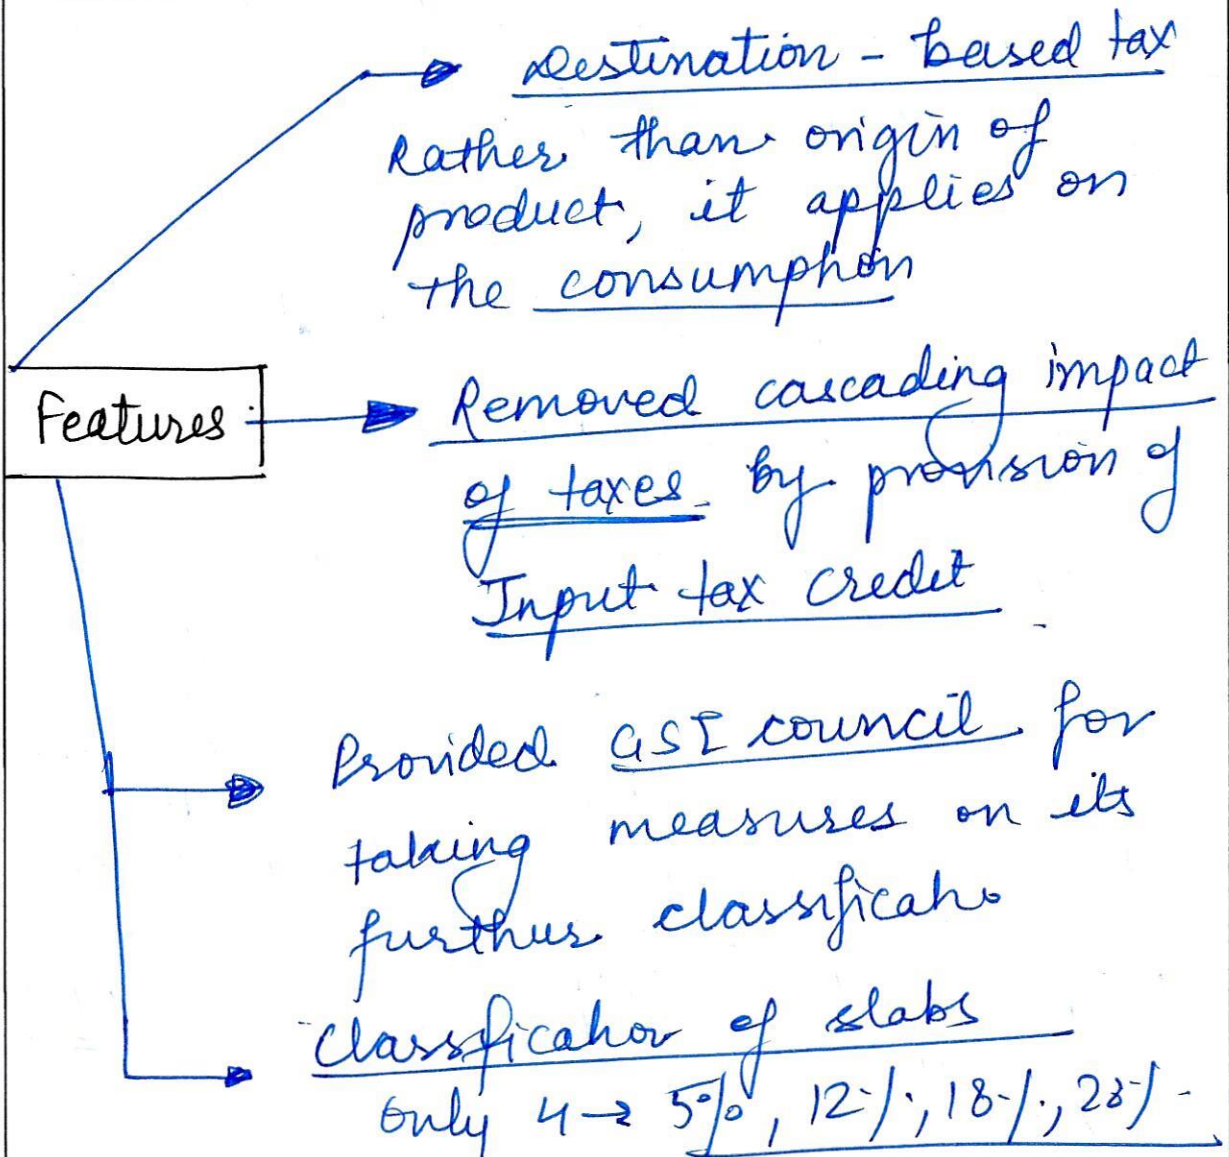 Destination - based tax
Rather than origin of
product, it applies on
the consumption
Features
Removed cascading impact
of taxes by provision of
Input tax credit
Provided GST council for
taking measures on its
further classificatio
Classification of slabs
Only 4 → 5%, 12%, 18%, 28%